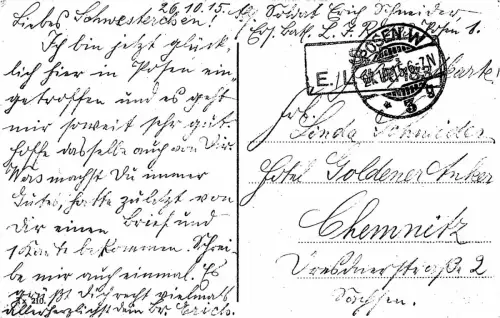 26.10.15.
Liebes Schwesterchen!
Ich bin jetzt glück-
lich hier in Posen ein-
getroffen und es geht
mir soweit sehr gut
hoffe dasselbe auch von Dir.
Was machst Du immer
Gutes, hatte zuletzt von
Dir einen Brief und
1 Karte bekommen. Schrei-
be mir auch einmal. Es
grüßt Dich recht vielmals
Allerherzlichst dein Br. Erich.
Soldat Erich Schneider,
Ers. Bat. L. I. R. Posen
POSEN W.
3 g
Linda Schneider
Hotel Goldener Anker
Chemnitz
Dresdnerstraße 2
Sachsen.